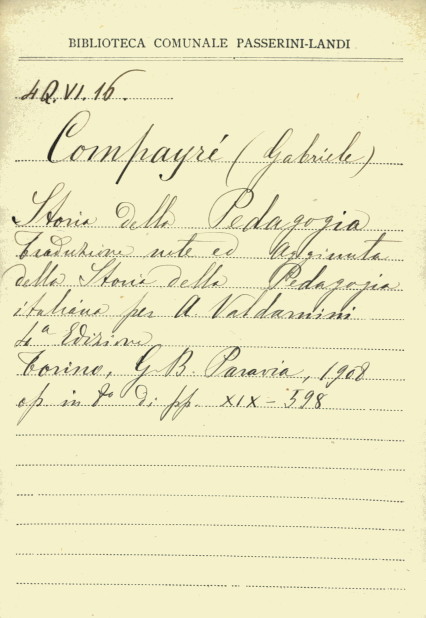 BIBLIOTECA COMUNALE PASSERINI-LANDI
4Q.VI.16.
Compayré (Gabriele)
Storia della Pedagogia
Traduzione note ed Aggiunta
della Storia della Pedagogia
italiana per A Valdarnini
4a Edizione
Torino, G B. Paravia, 1908
op in 8o di pp. XIX-598